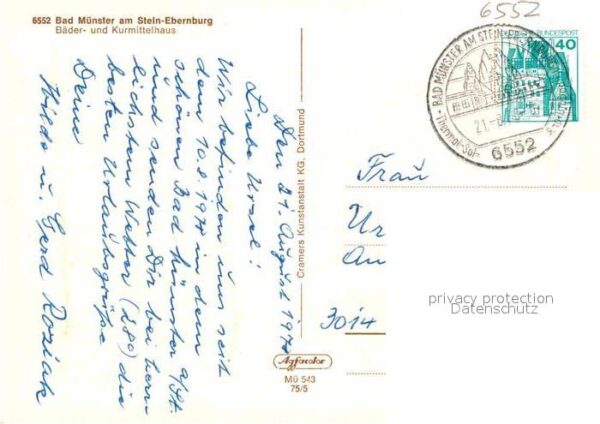 6552 Bad Münster am Stein-Ebernburg
Bäder- und Kurmittelhaus
Den 21. August 197
Liebe Ursel!
Wir befinden uns seit
dem 10.8.197 in dem
schönen Bad Münster a/St.
und senden Dir bei herr-
lichstem Wetter (28°) die
besten Urlaubsgrüße
Deine
Hilde u. Gerd Koziak
Cramers Kunstanstalt KG, Dortmund
Agfacolor
MÜ 543
75/5
6552
BAD MÜNSTER AM STEIN-EBERNBURG
Thermal-Sol-
21.-8
6552
BUNDESPOST
40
Frau
Ur
An
3014
privacy protection
Datenschutz